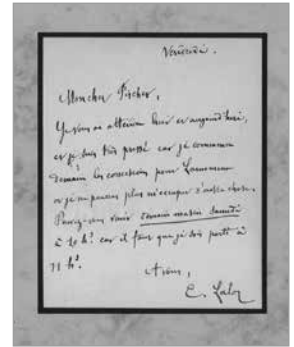 Vendredi.
Mon cher Fischer,
Je vous ai attendu hier et aujourd'hui,
et je suis très pressé car je commence
demain les corrections pour Lamoureux
et je ne pourrai plus m'occuper d'autre chose.
Pouvez-vous venir demain matin samedi
à 10 h.? car il faut que je sois parti à
11 h.
A vous,
E. Lalo